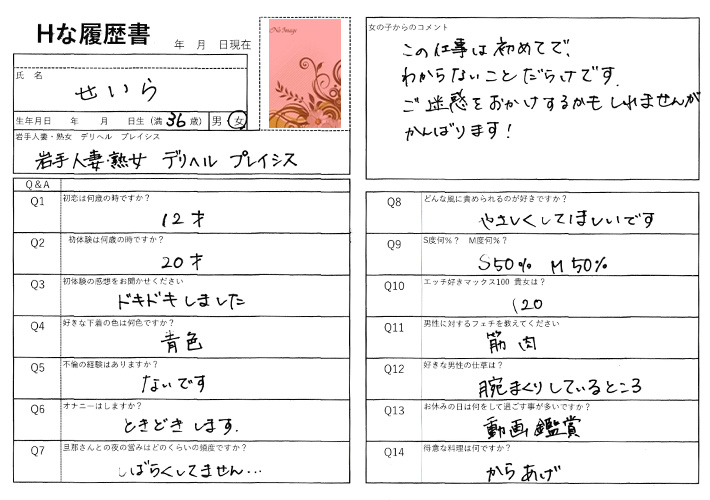 Hな履歴書
年 月 日現在
No Image
氏 名
せいら
生年月日 年 月 日生（満 36 歳） 男・女
岩手人妻・熟女 デリヘル プレイシス
岩手人妻・熟女 デリヘル プレイシス
Q&A
Q1 初恋は何歳の時ですか？
12才
Q2 初体験は何歳の時ですか？
20才
Q3 初体験の感想をお聞かせください
ドキドキしました
Q4 好きな下着の色は何色ですか？
青色
Q5 不倫の経験はありますか？
ないです
Q6 オナニーはしますか？
ときどきします.
Q7 旦那さんとの夜の営みはどのくらいの頻度ですか？
しばらくしてません…
女の子からのコメント
この仕事は初めてで、
わからないことだらけです.
ご迷惑をおかけするかもしれませんが
がんばります！
Q8 どんな風に責められるのが好きですか？
やさしくしてほしいです
Q9 S度何%？ M度何%？
S50% M50%
Q10 エッチ好きマックス100 貴女は？
120
Q11 男性に対するフェチを教えてください
筋肉
Q12 好きな男性の仕草は？
腕まくりしているところ
Q13 お休みの日は何をして過ごす事が多いですか？
動画鑑賞
Q14 得意な料理は何ですか？
からあげ